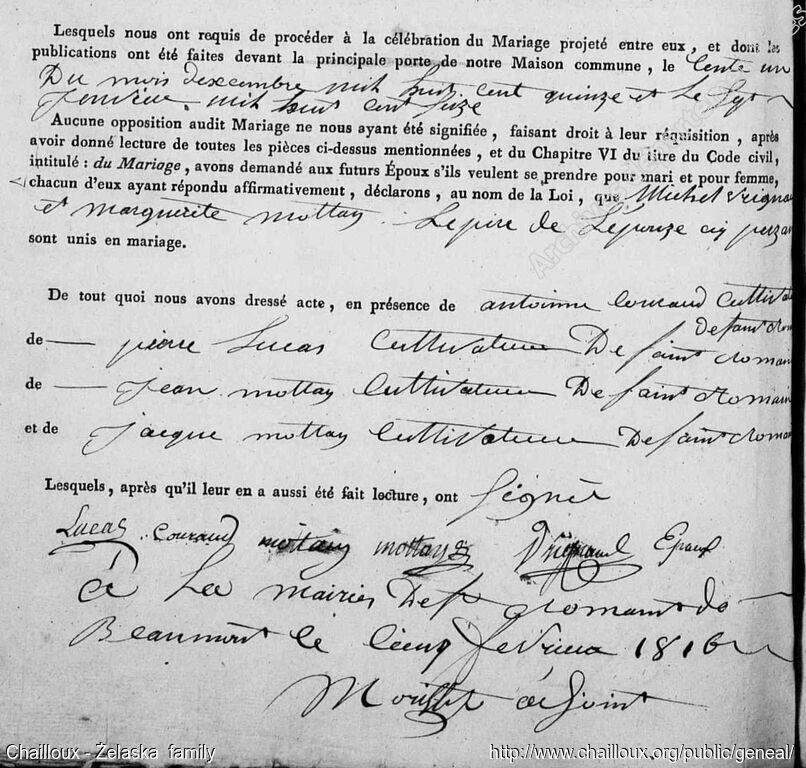 Lesquels nous ont requis de procéder à la célébration du Mariage projeté entre eux, et dont les
publications ont été faites devant la principale porte de notre Maison commune, le
Du mois dexcembre mil huit cent quinze et le
Janvier mil huit cent seize
Aucune opposition audit Mariage ne nous ayant été signifiée, faisant droit à leur réquisition, après
avoir donné lecture de toutes les pièces ci-dessus mentionnées, et du Chapitre VI du titre du Code civil,
intitulé : du Mariage, avons demandé aux futurs Époux s'ils veulent se prendre pour mari et pour femme,
chacun d'eux ayant répondu affirmativement, déclarons, au nom de la Loi, que Michel
et marguerite mottay
sont unis en mariage.
De tout quoi nous avons dressé acte, en présence de antoinne couraud
de saint
de pierre Lucas Cultivateur De saint Romain
de jean mottay Cultivateur De saint Romain
et de jacque mottay Cultivateur De saint Romain
Lesquels, après qu'il leur en a aussi été fait lecture, ont Signér
Lucas couraud mottay mottay Epoux
à La mairie De st Romain
Beaumont le cinq fevrier 1816
Chailloux - Żelaska family
http://www.chailloux.org/public/geneal/